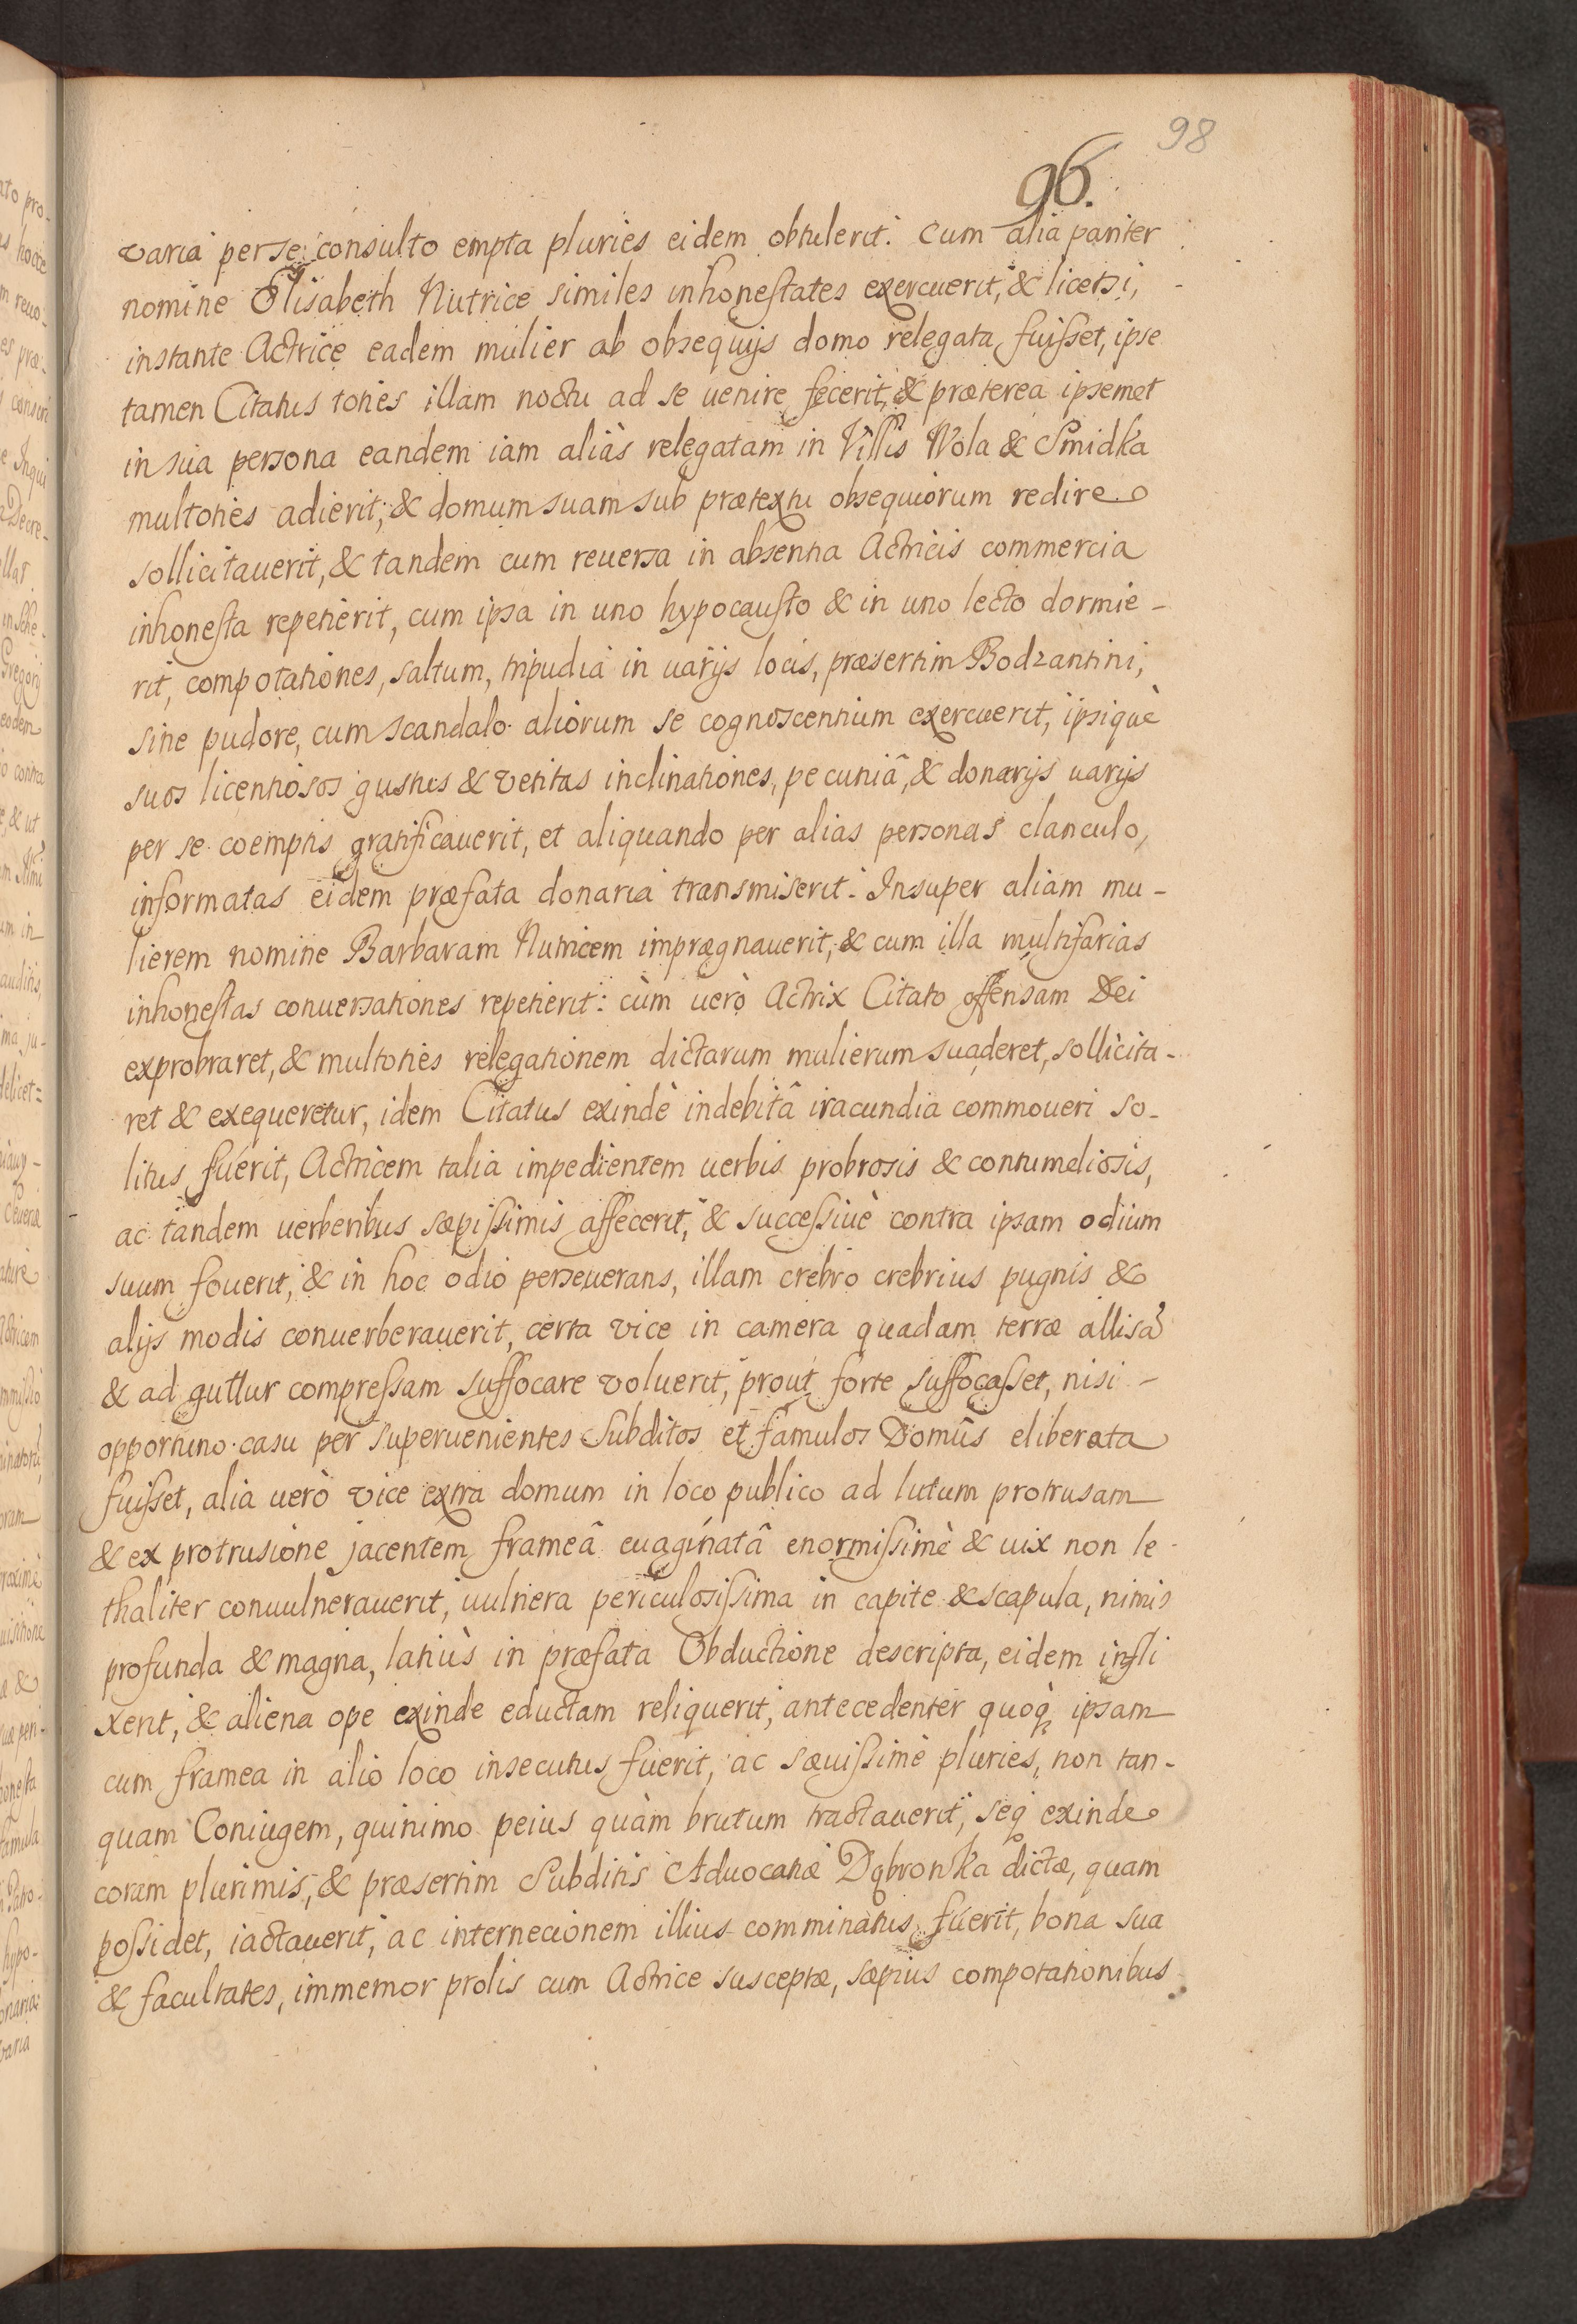 98
96.
varia per se consulto empta pluries eidem obtulerit. Cum alia pariter
nomine Elisabeth Nutrice similes inhonestates exercuerit, & licetsi,
instante Actrice eadem mulier ab obsequijs domo relegata fuisset, ipse
tamen Citatus toties illam noctu ad se uenire fecerit, & præterea ipsemet
in sua persona eandem iam aliàs relegatam in Villis Wola & Smidka
multoties adierit, & domum suam sub prætextu obsequiorum redire
sollicitauerit, & tandem cum reuersa in absentia Actricis commercia
inhonesta repetierit, cum ipsa in uno hypocausto & in uno lecto dormie-
rit, compotationes, saltum, tripudia in uarijs locis, præsertim Bodzantini,
sine pudore, cum scandalo aliorum se cognoscentium exercuerit, ipsiquè
suos licentiosos gustus & vetitas inclinationes, pecuniâ, & donarijs uarijs
per se coemptis gratificauerit, et aliquando per alias personas clanculo,
informatas eidem præfata donaria transmiserit. Insuper aliam mu-
lierem nomine Barbaram Nutricem imprægnauerit, & cum illa multifarias
inhonestas conuersationes repetierit: cùm uerò Actrix Citato offensam Dei
exprobraret, & multoties relegationem dictarum mulierum suaderet, sollicita-
ret & exequeretur, idem Citatus exindè indebitâ iracundia commoueri so-
litus fuerit, Actricem talia impedientem uerbis probrosis & contumeliosis,
ac tandem uerberibus sæpissimis affecerit, & successiuè contra ipsam odium
suum fouerit, & in hoc odio perseuerans, illam crebro crebrius pugnis &
alijs modis conuerberauerit, certa vice in camera quadam terræ allisã
& ad guttur compressam suffocare voluerit, prout forte suffocasset, nisi
opportuno casu per superuenientes Subditos et famulos Domûs eliberata
fuisset, alia uerò vice extra domum in loco publico ad lutum protrusam
& ex protrusione jacentem frameâ euaginatâ enormissimè & uix non le
thaliter conuulnerauerit, uulnera periculosissima in capite & scapula, nimis
profunda & magna, latiùs in præfata Obductione descripta, eidem infli
xerit, & aliena ope exinde eductam reliquerit, antecedenter quoq̀ ipsam
cum framea in alio loco insecutus fuerit, ac sæuissimè pluries, non tan-
quam Coniugem, quinimo peius quàm brutum tractauerit, seq̀ exinde
coram plurimis, & præsertim Subditis Aduocatiæ Dąbronka dictæ, quam
possidet, iactauerit, ac internecionem illius comminatus fuerit, bona sua
& facultates, immemor prolis cum Actrice susceptæ, sæpius compotationibus